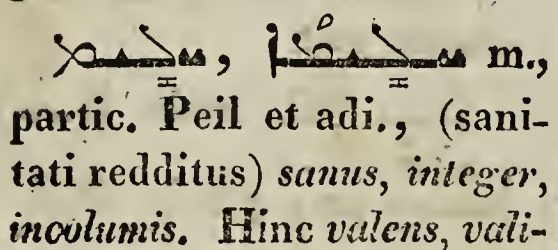 , m.,
partic. Peil et adi., (sani-
tati redditus) sanus, integer,
incolumis. Hinc valens, vali-